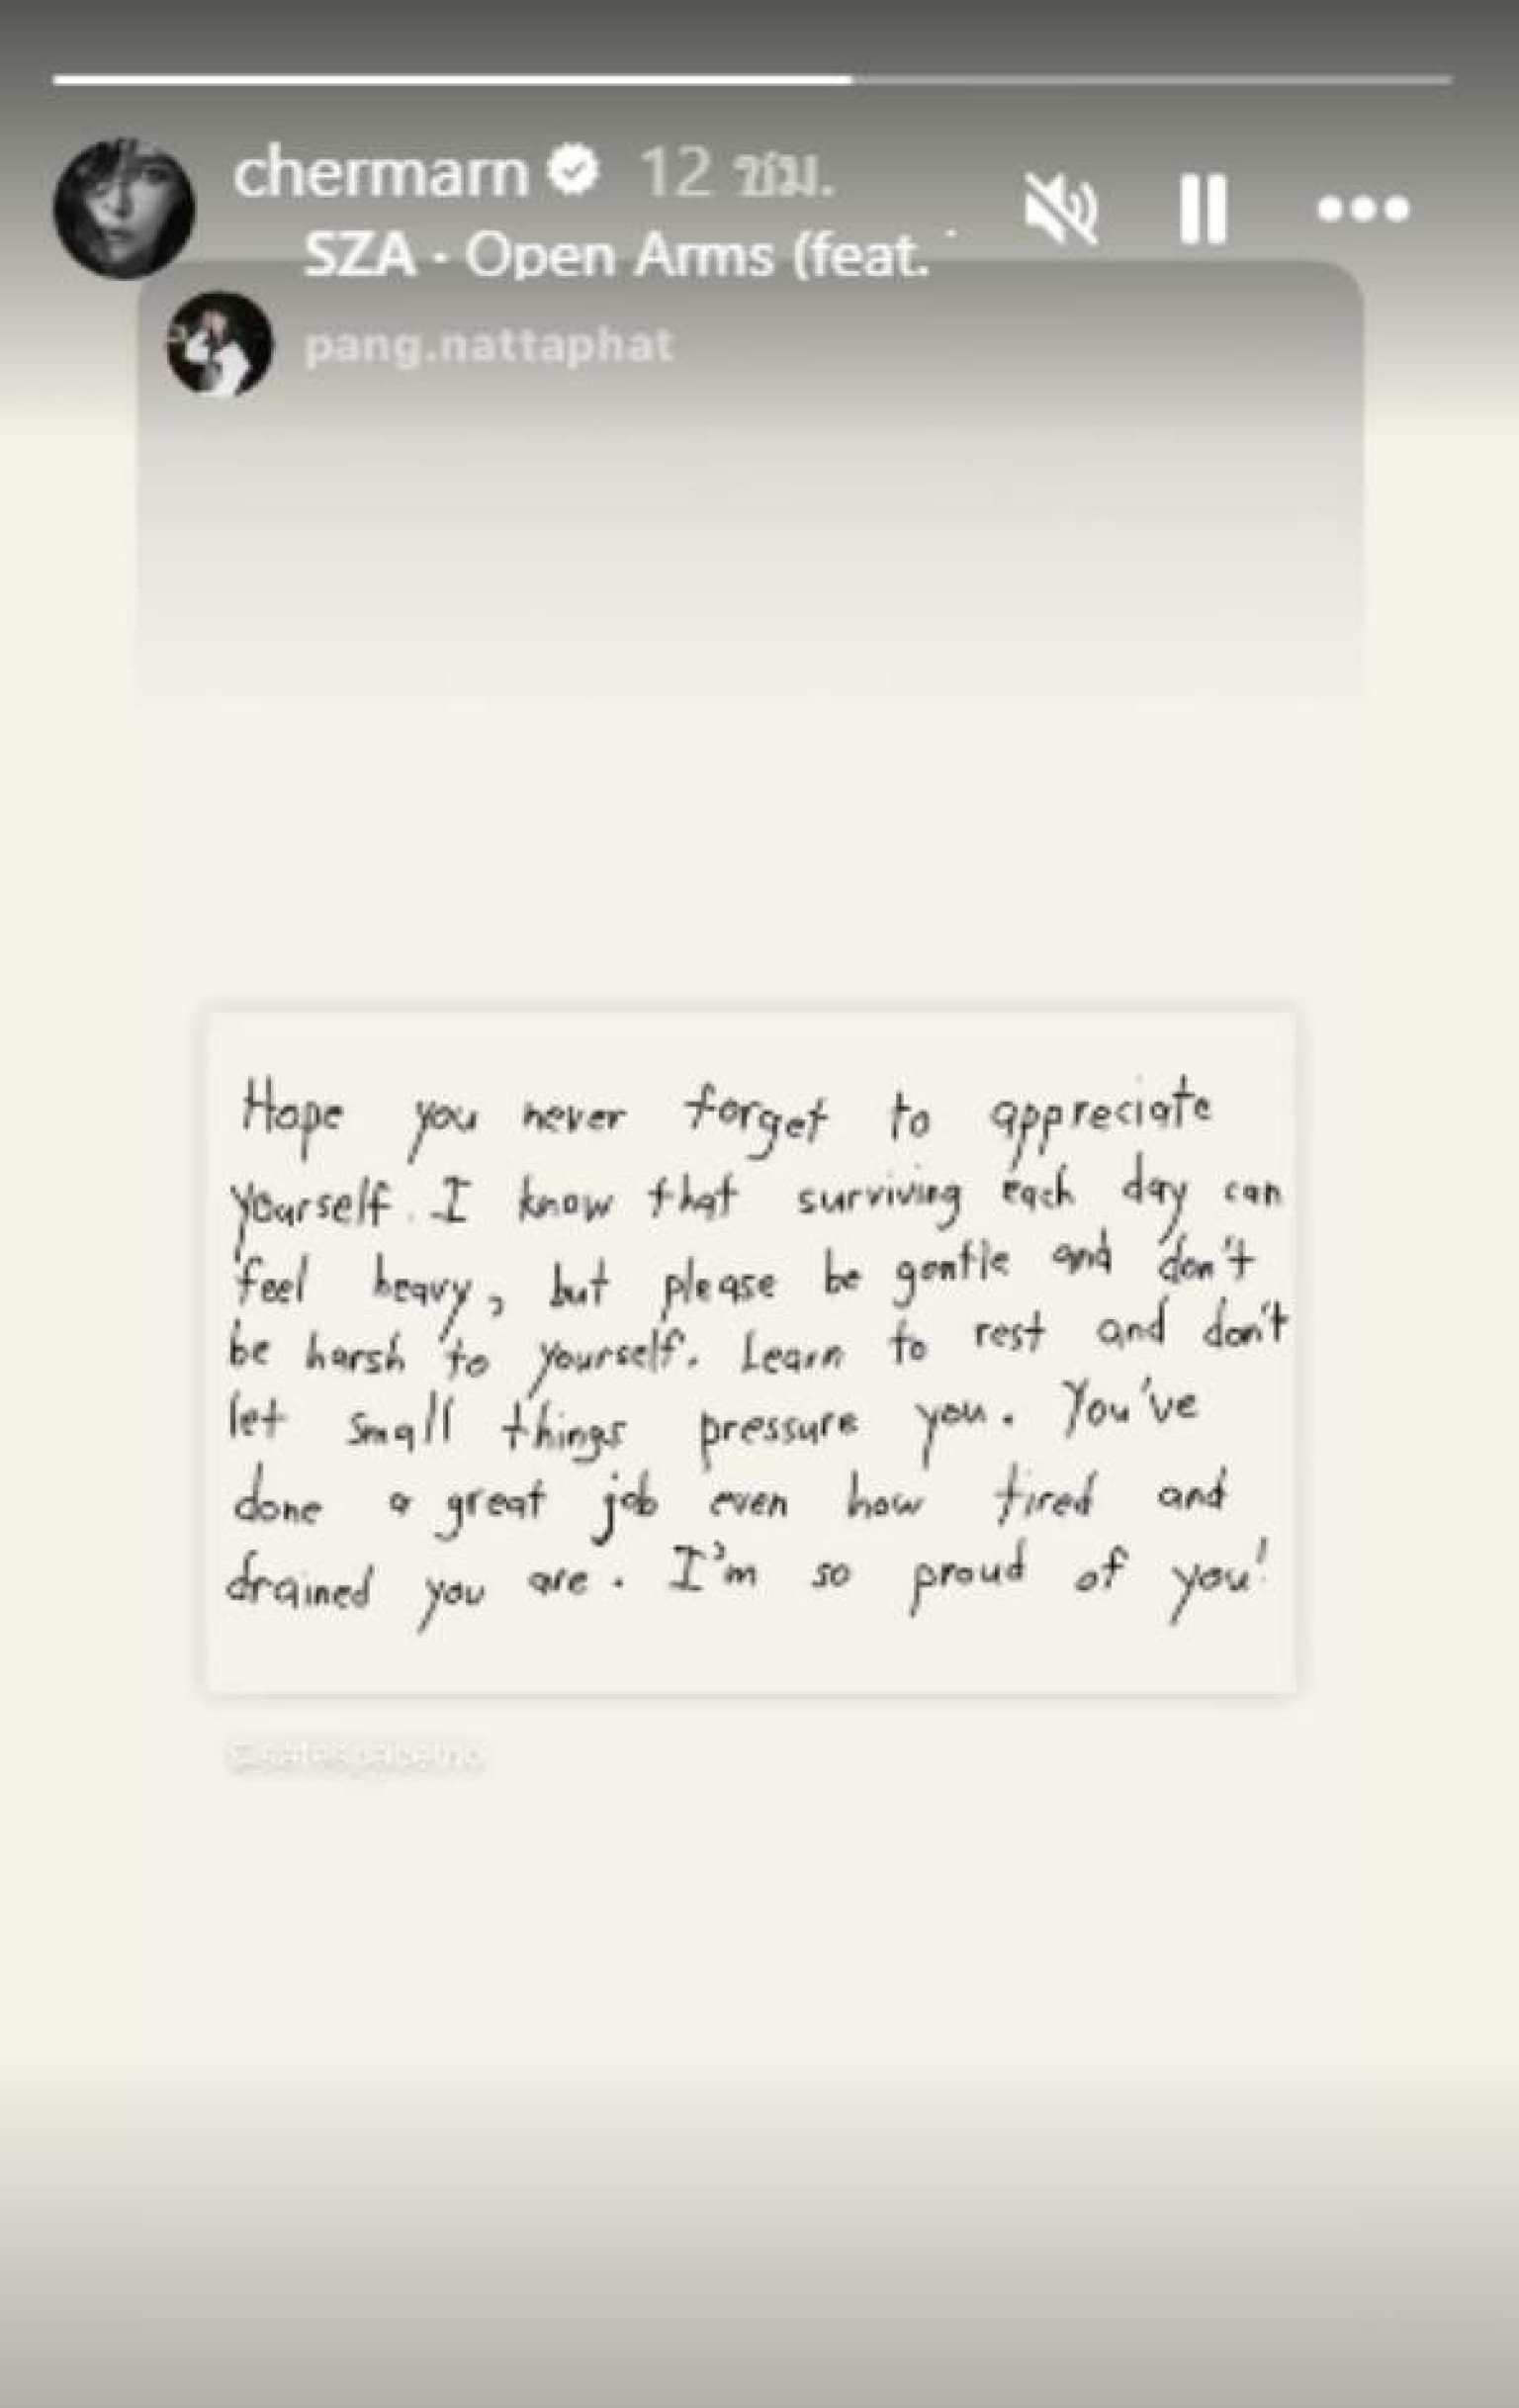 chermarn 12 ชม.
SZA · Open Arms (feat.
pang.nattaphat
Hope you never forget to appreciate
yourself. I know that surviving each day can
feel heavy, but please be gentle and don't
be harsh to yourself. Learn to rest and don't
let small things pressure you. You've
done a great job even how tired and
drained you are. I'm so proud of you!